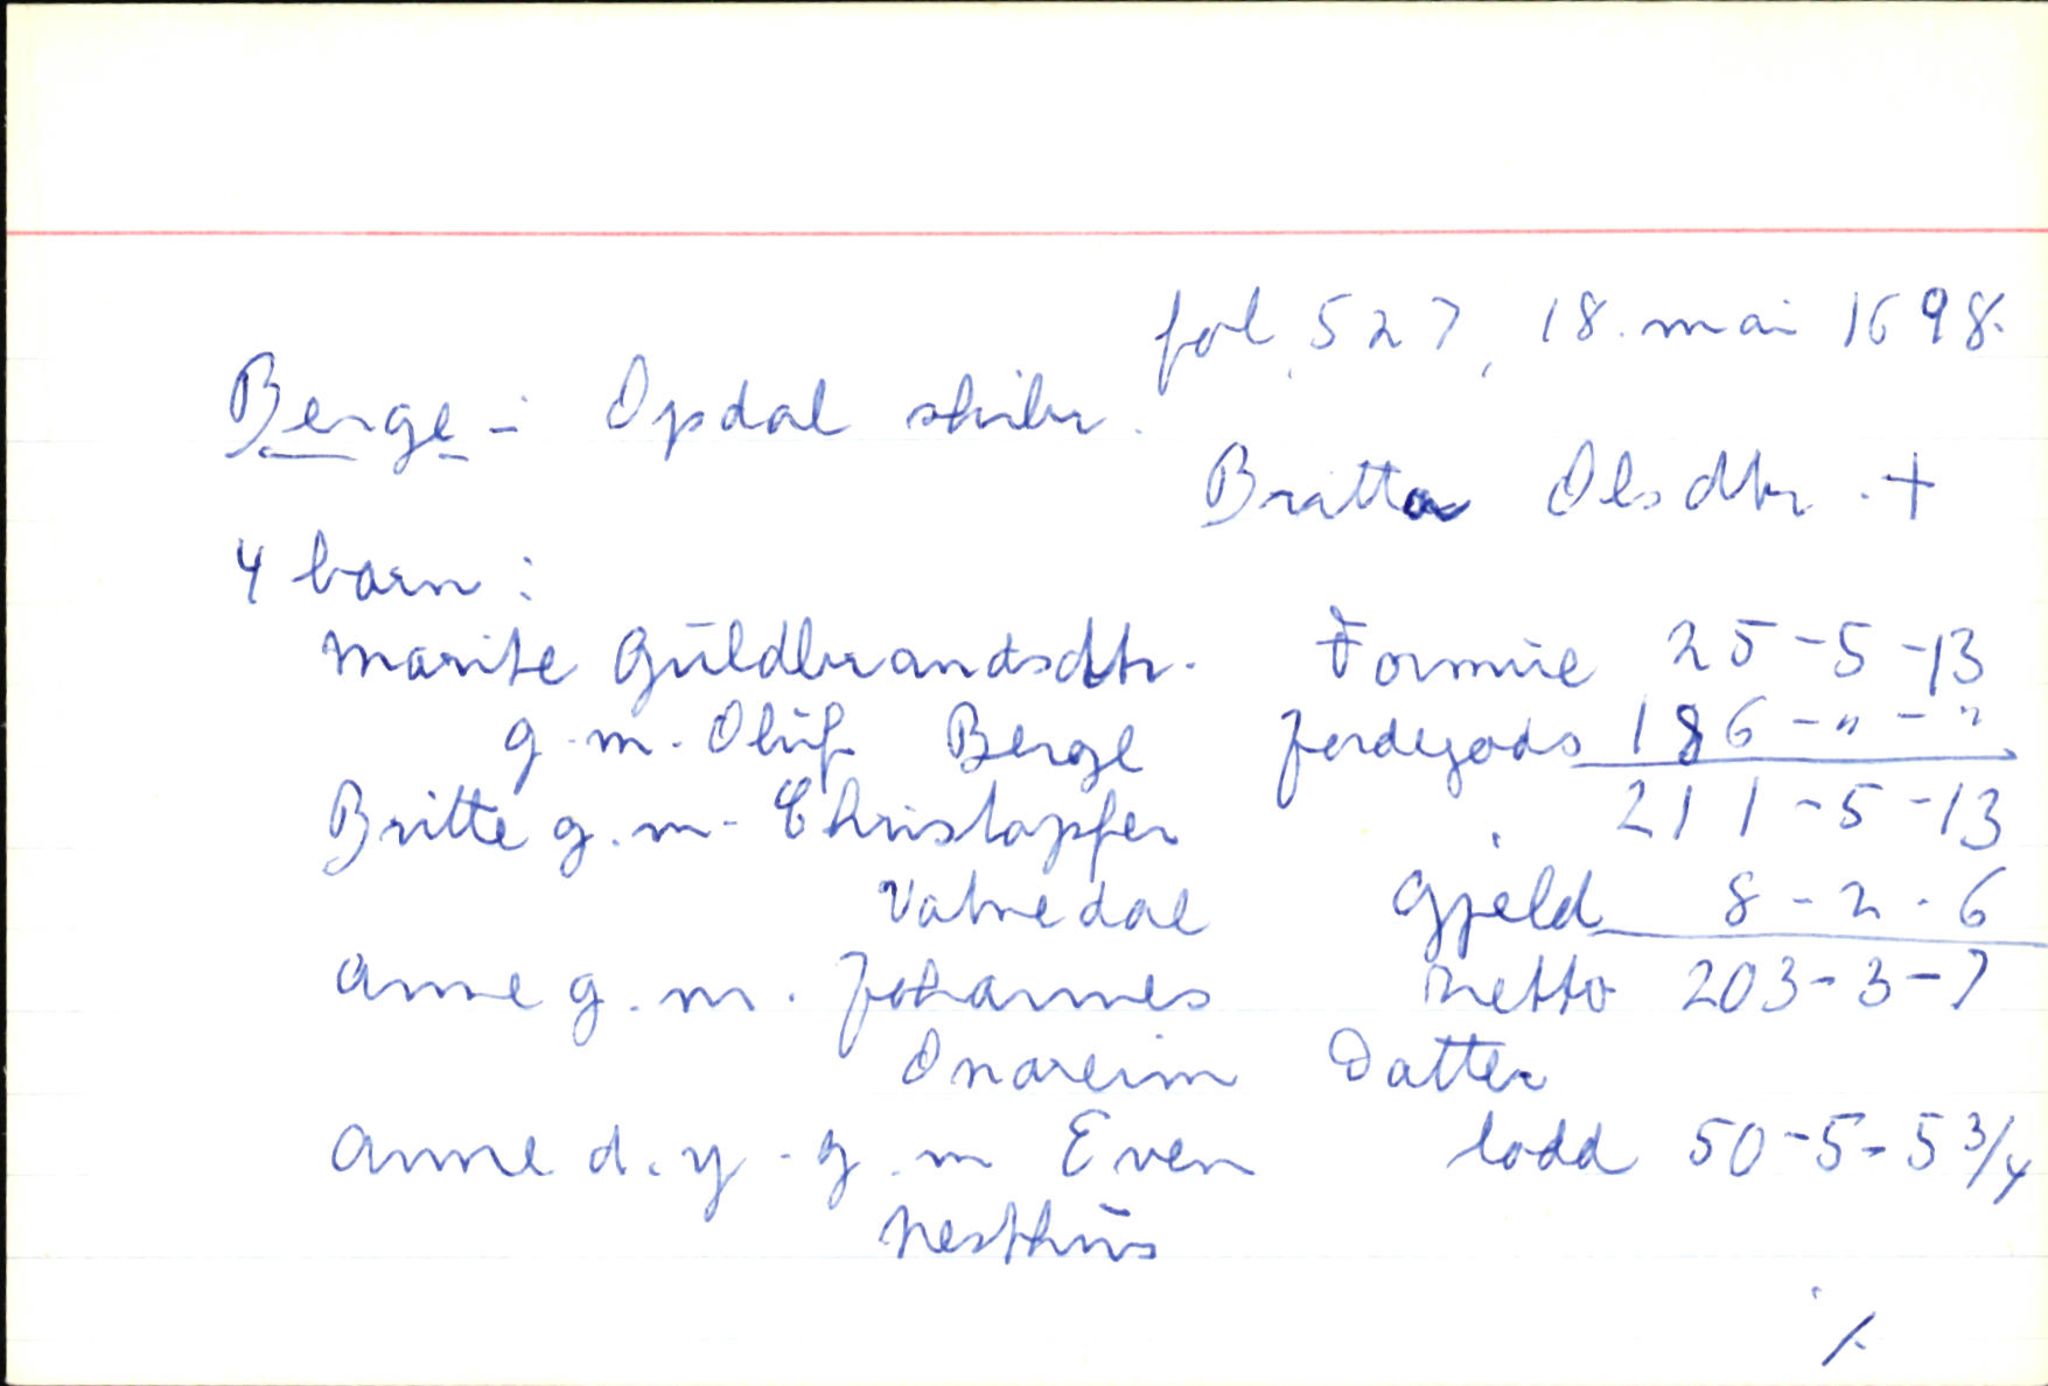 fol. 527, 18. mai 1698.
Berge - Opdal skibr.
Britta Olsdtr. +
4 barn:
Marite Guldbrandsdtr. Formue 25-5-13
g.m. Oluf Berge Jordegods 186-"-"
211-5-13
Britte g.m. Christopfer
Vatnedal Gjeld 8-2-6
Anne g.m. Johannes Netto 203-3-7
Onareim Datter
Anne d.y. g.m Even lodd 50-5-5 3/4
Nesthus
./.